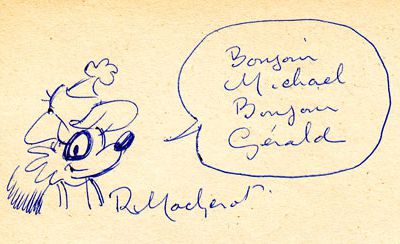 Bonjour
Michael
Bonjour
Gérald
R. Macherot.